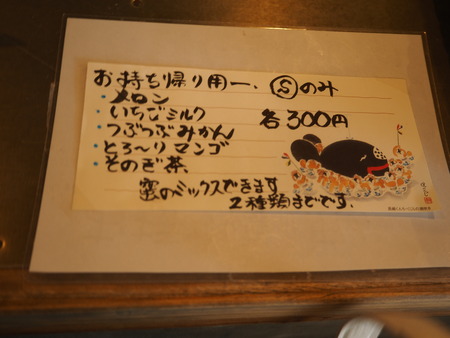 お持ち帰り用ー、Ⓢのみ
・メロン
・いちごミルク 各300円
・つぶつぶみかん
・とろ～りマンゴ
・そのぎ茶
蜜のミックスできます
2種類までです.